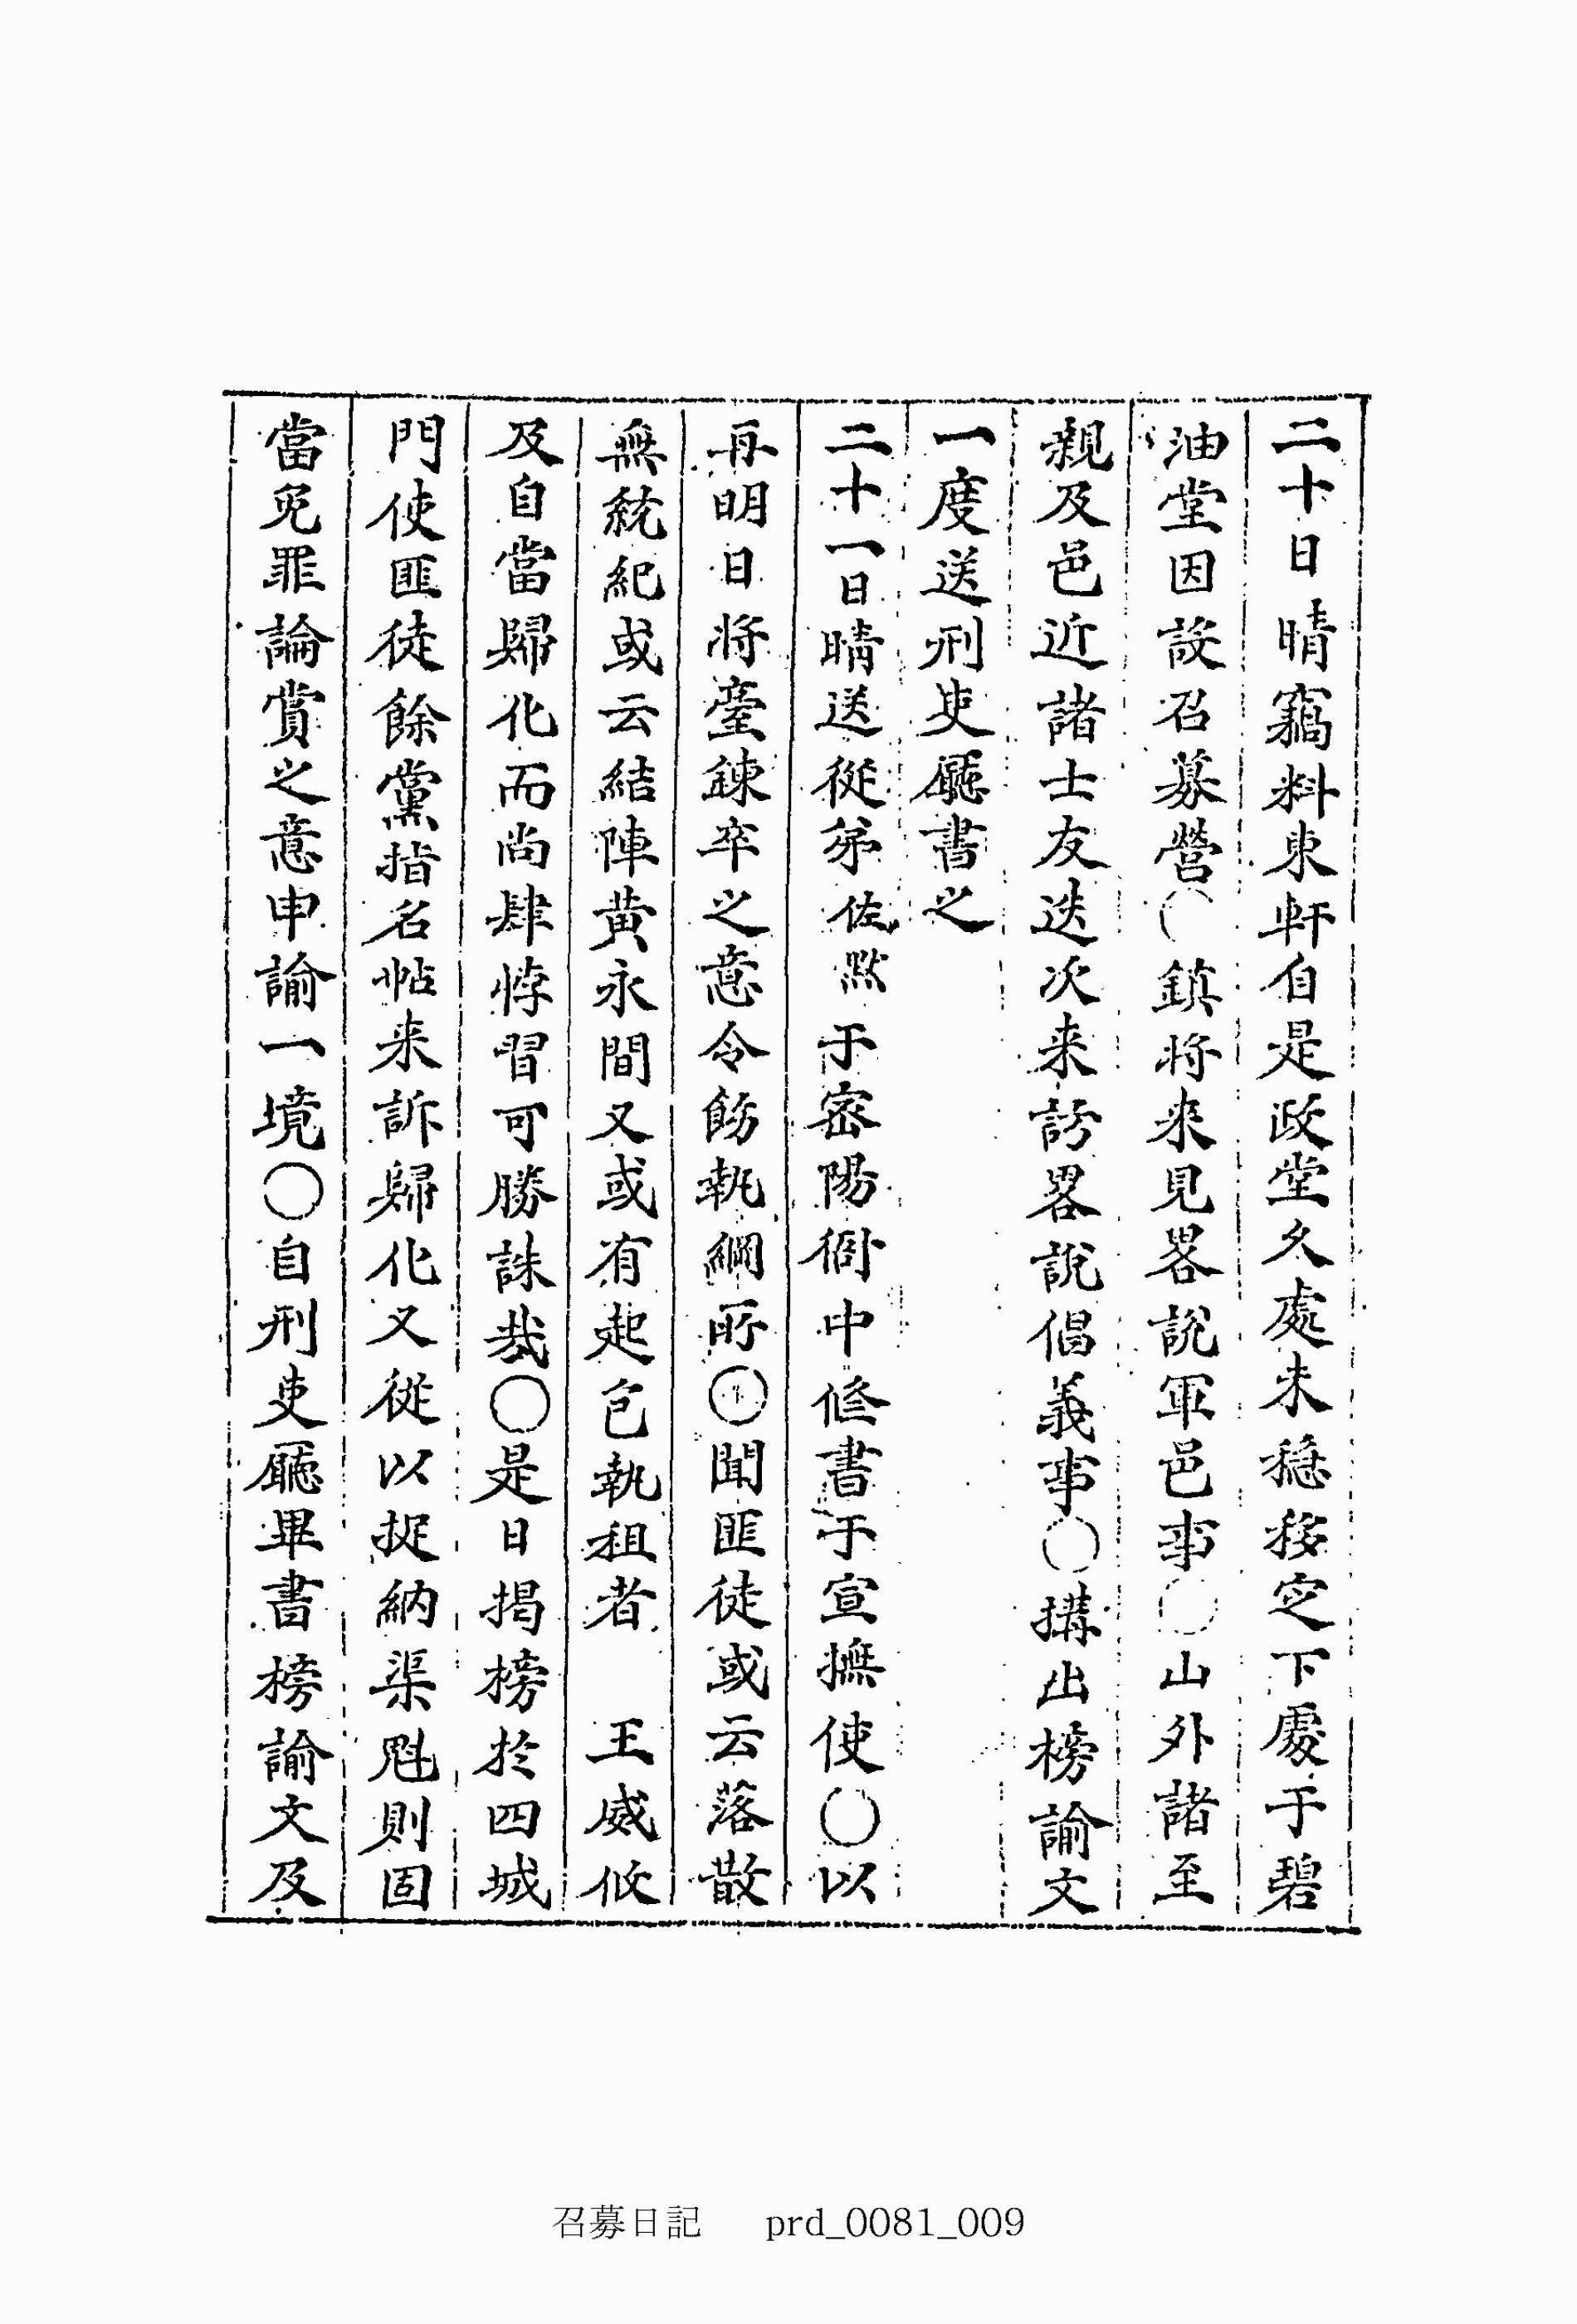 二十日晴竊料東軒自是政堂久處未穩移定下處于碧
油堂因設召募營○鎭將來見畧說軍邑事○山外諸至
親及邑近諸士友迭次來訪畧說倡義事○搆出榜諭文
一度送刑吏廳書之
二十一日晴送從弟佐默于密陽衙中修書于宣撫使○以
再明日將臺鍊卒之意令飭執綱所○聞匪徒或云落散
無統紀或云結陣黃永間又或有起包執租者 王威攸
及自當歸化而尚肆悖習可勝誅哉○是日揭榜於四城
門使匪徒餘黨指名帖来訴歸化又從以捉納渠魁則固
當免罪論賞之意申諭一境○自刑吏廳畢書榜諭文及
召募日記 prd_0081_009